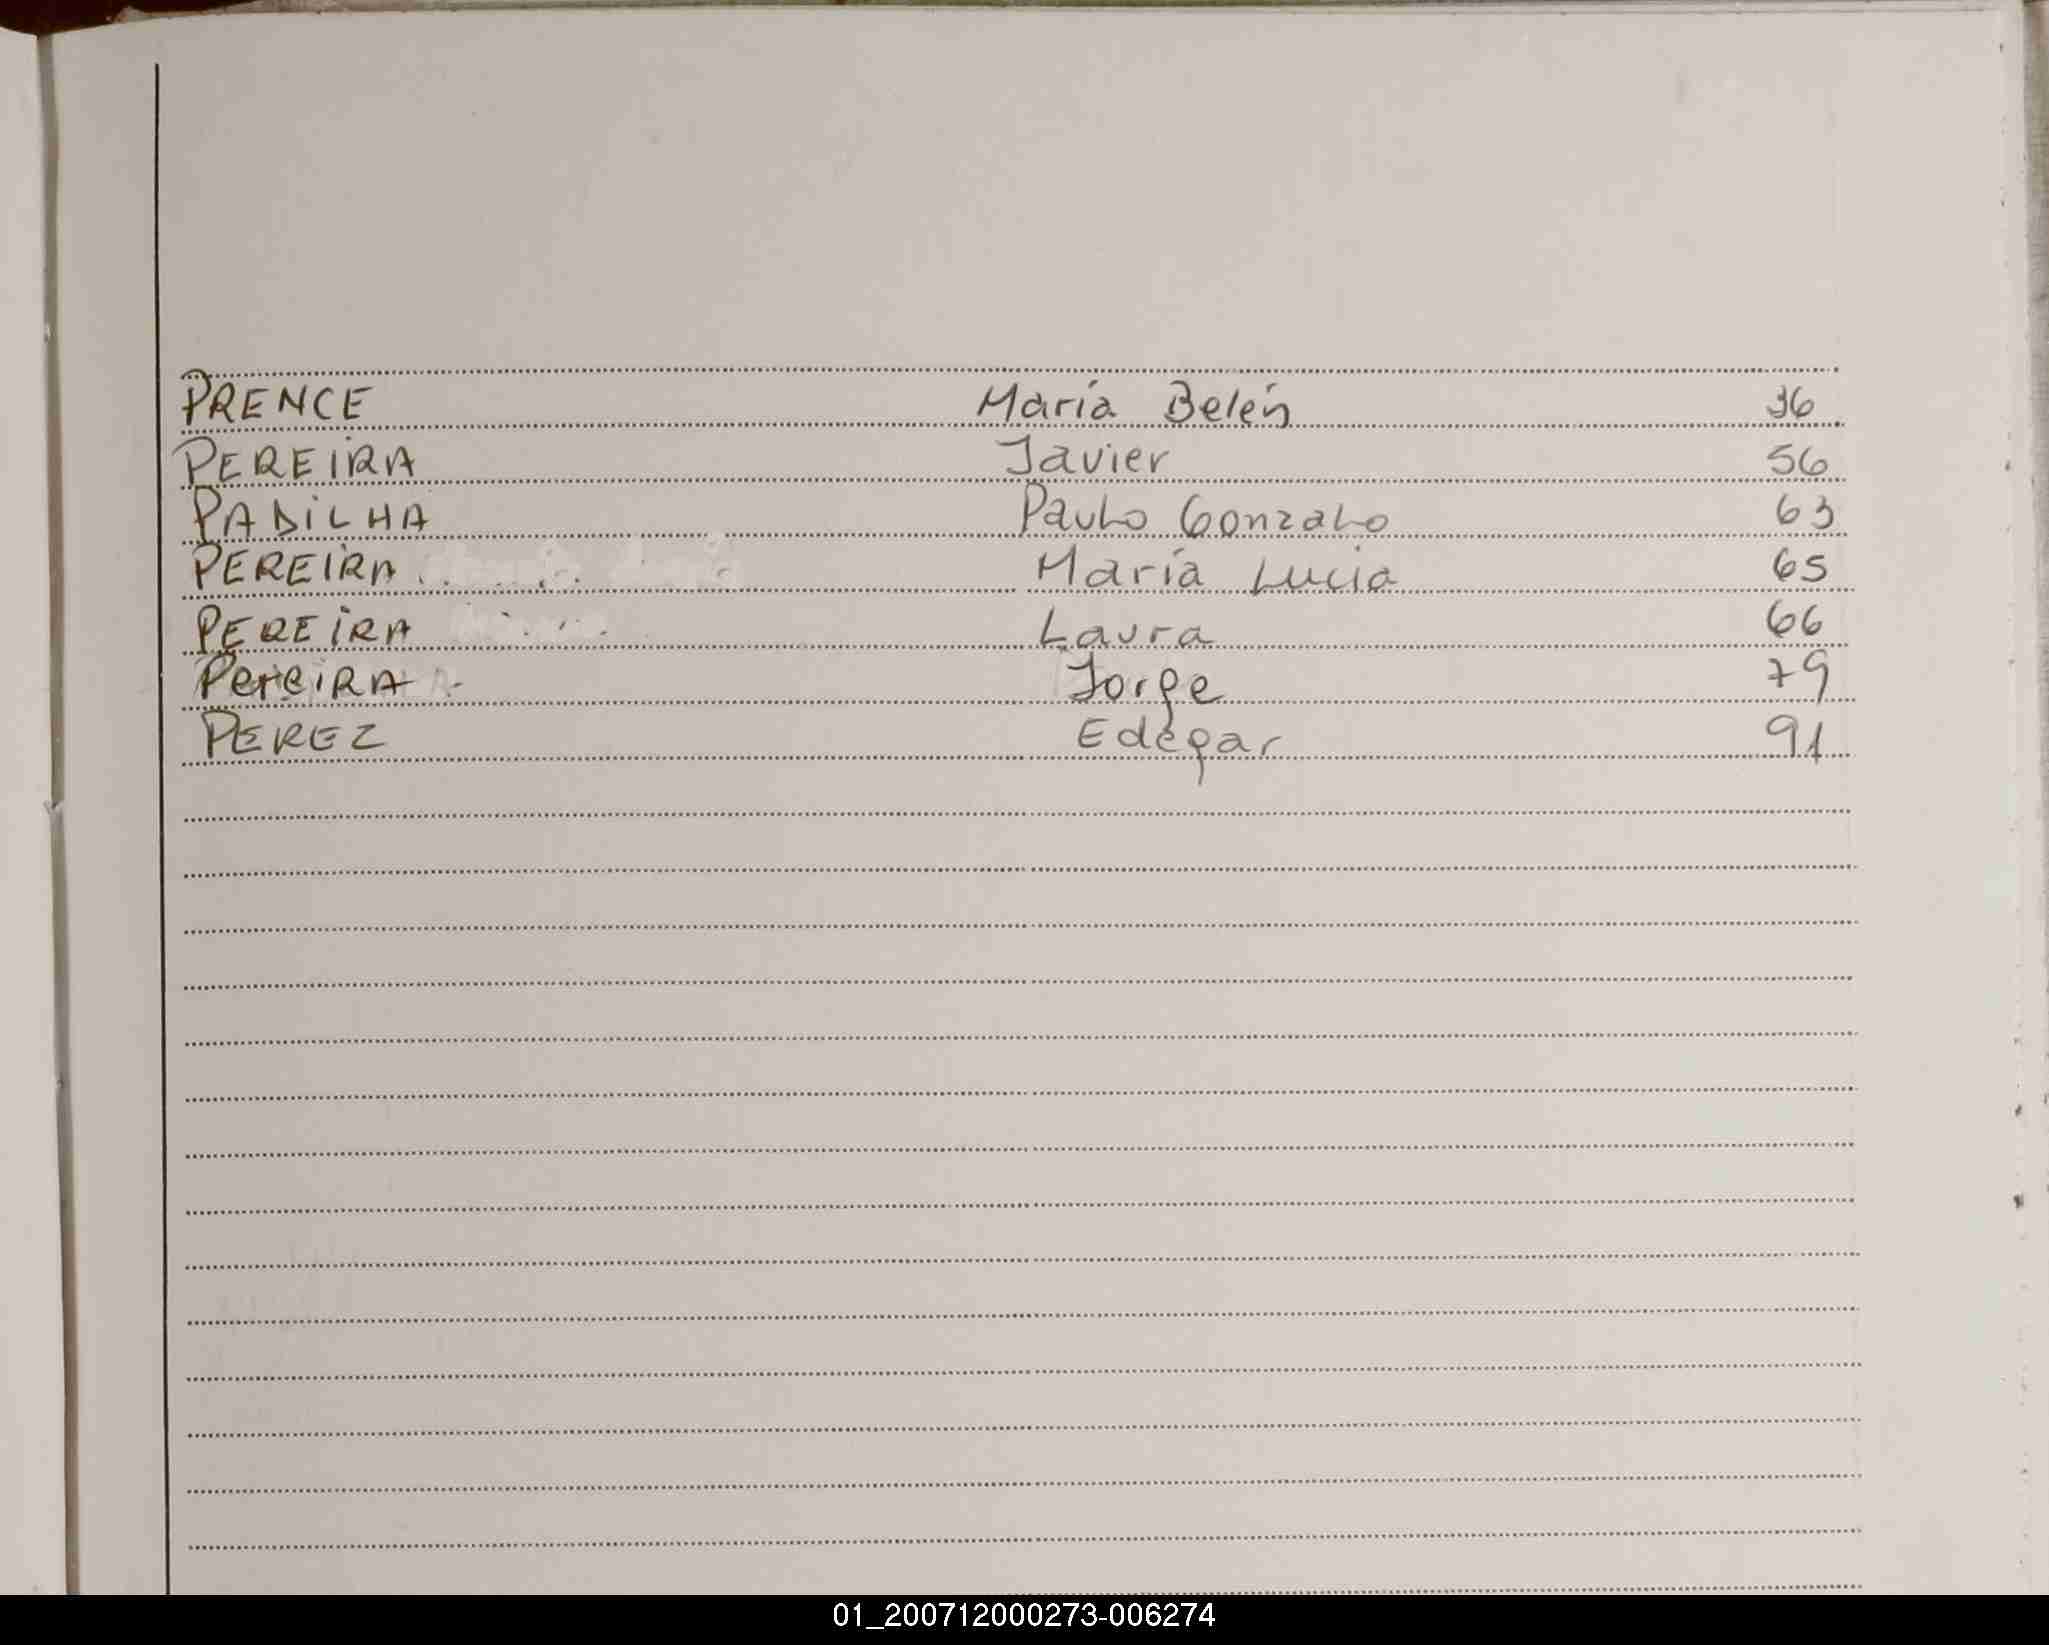 PRENCE María Belén 36
PEREIRA Javier 56
PADILHA Paulo Gonzalo 63
PEREIRA María Lucia 65
PEREIRA Laura 66
PereiRA Jorge 79
PEREZ Edegar 91
01_200712000273-006274